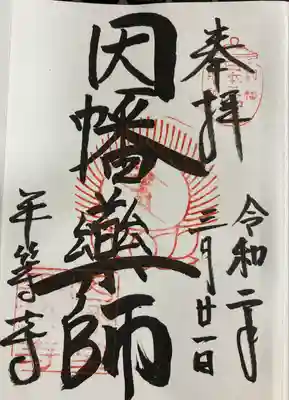 奉拝
令和二年
三月廿一日
因幡藥師
平等寺